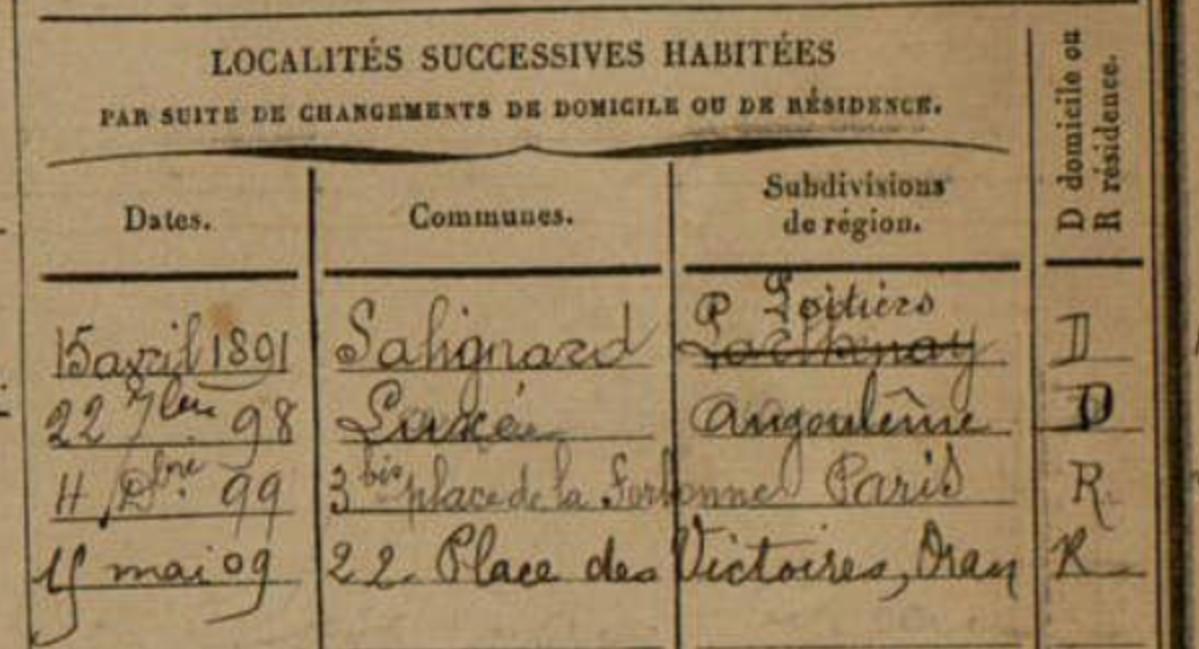 LOCALITÉS SUCCESSIVES HABITÉES
PAR SUITE DE CHANGEMENTS DE DOMICILE OU DE RÉSIDENCE.
D domicile ou
R résidence.
Dates.
Communes.
Subdivisions
de région.
P Poitiers
15 avril 1891 Salignard Parthenay D
22 7bre 98 Luxé Angoulême D
4 Dbre 99 3 bis place de la Sorbonne Paris R
15 mai 09 22 Place des Victoires, Oran R